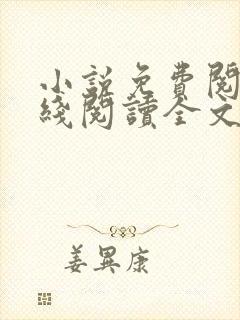 小說免費閱
綫閱讀全文
姜異康